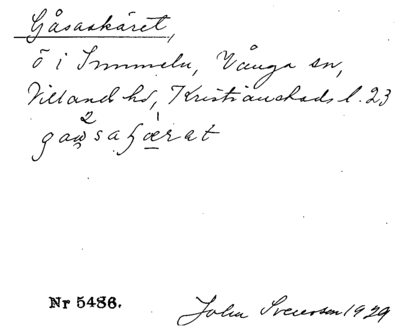 Gåsaskäret,
ö i Immeln, Vånga sn,
Villands hd, Kristianstads l. 23
Nr 5486.
John Svensson 1929